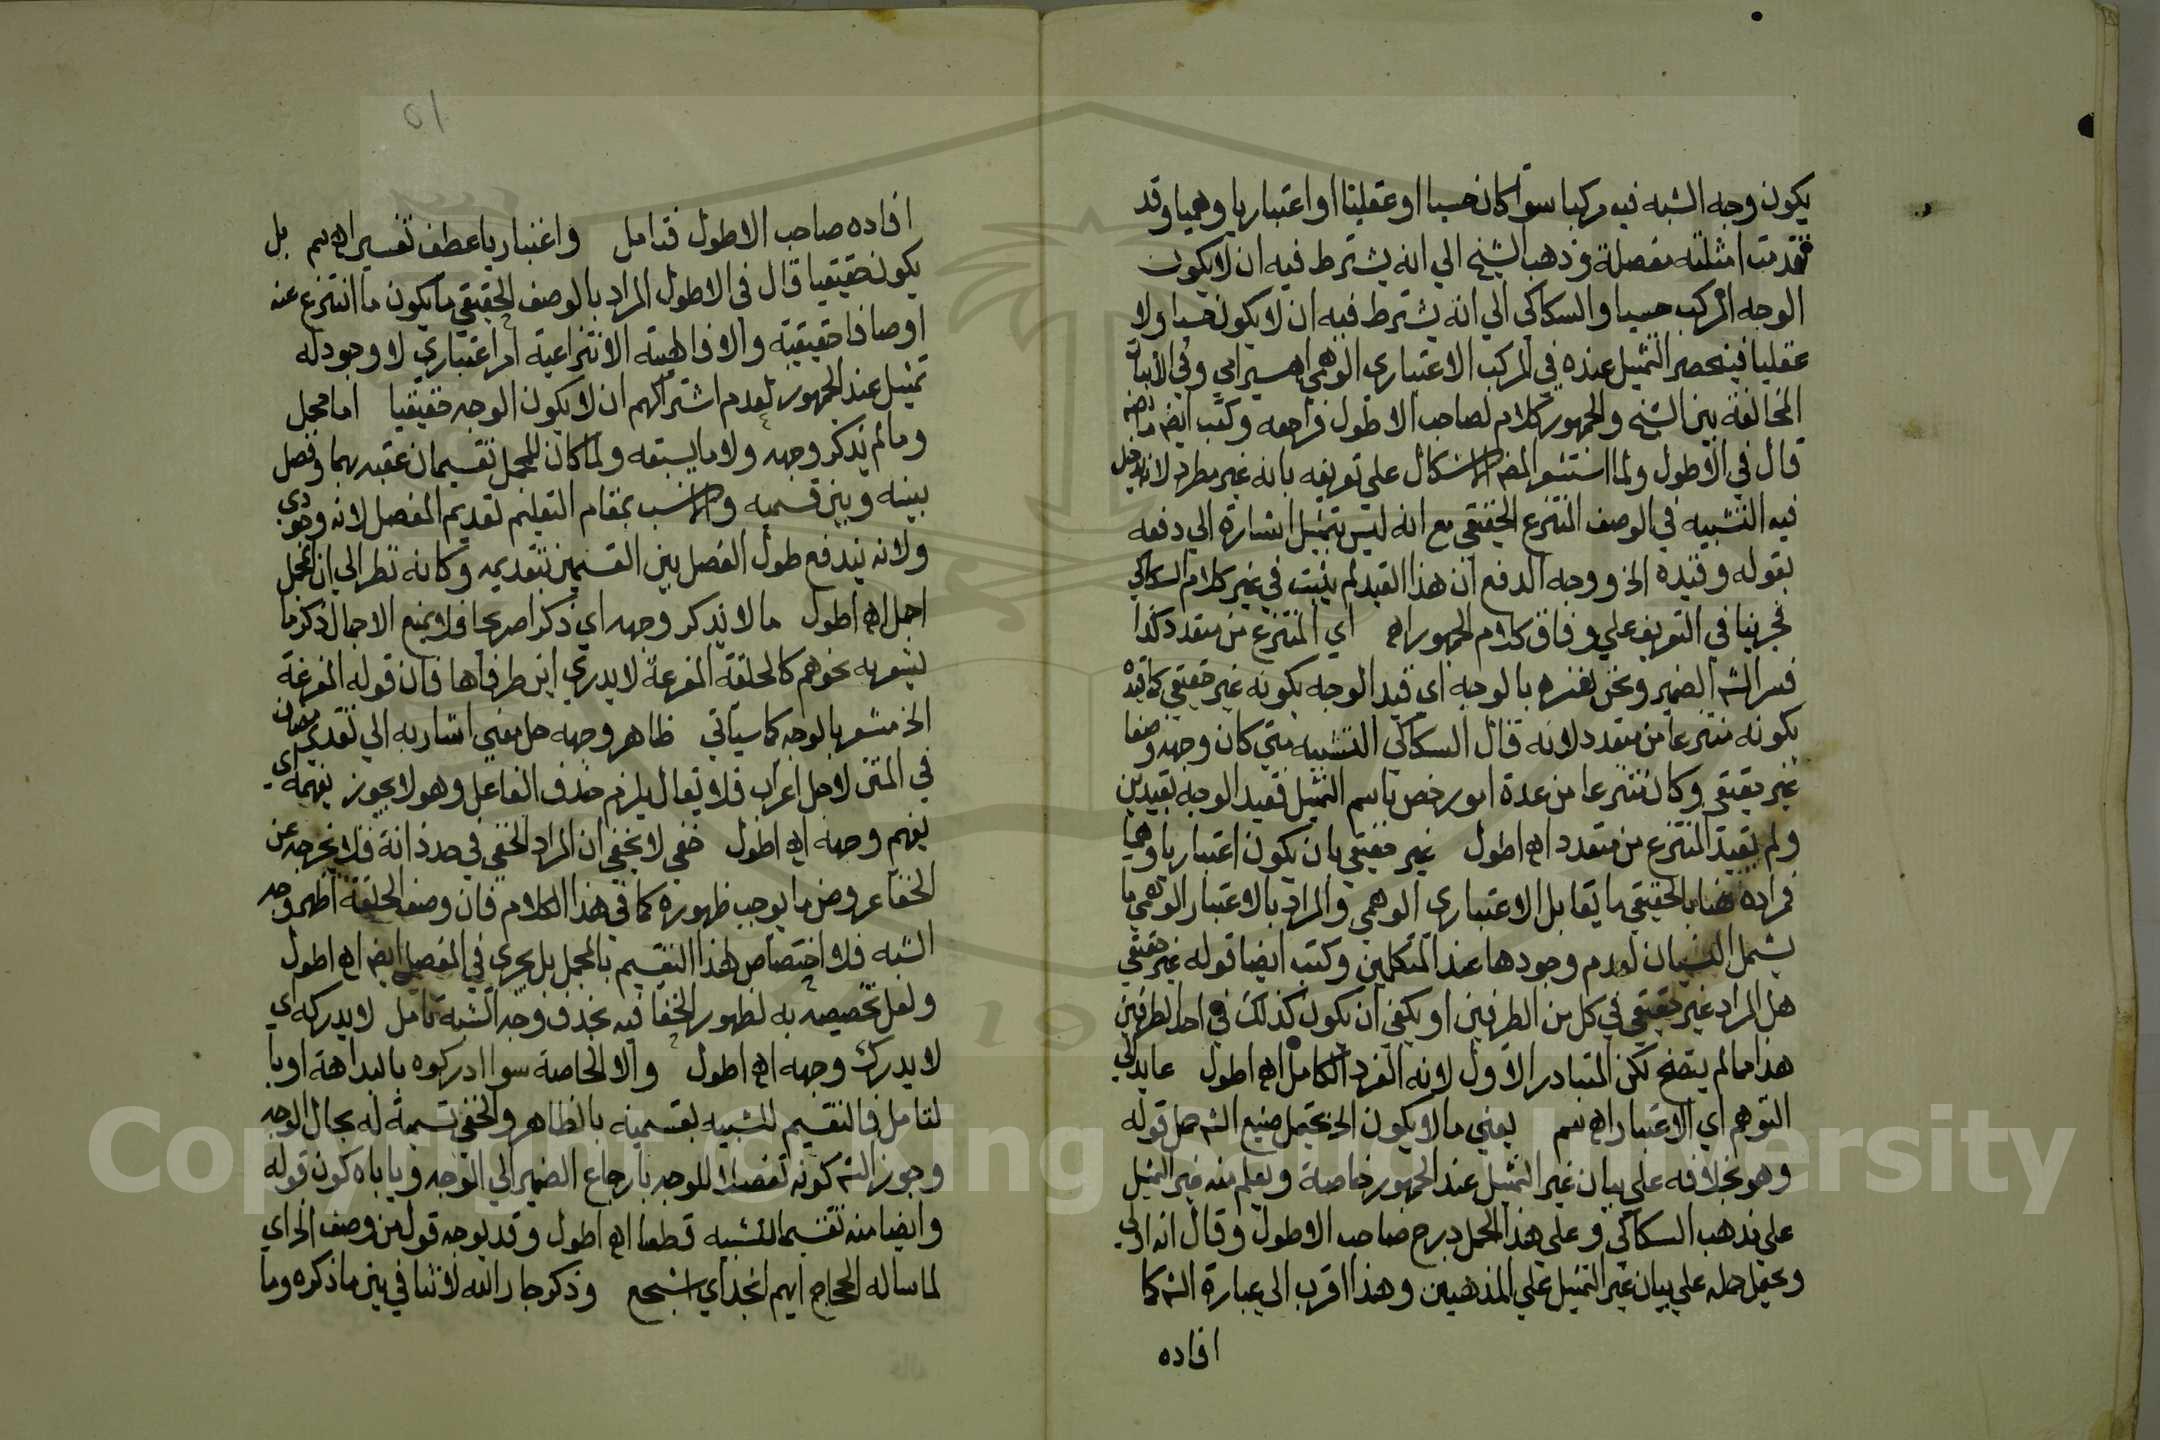 يكون وجه الشبه فيه مركبا سوا كان حسيا او عقليا او اعتباريا وهميا وقد
تقدمت امثلته مفصلة وذهب الشيخ الي انه يشترط فيه ان لا يكون
الوجه المركب حسيا والسكاكي الي انه يشترط فيه ان لا يكون حسيا ولا
عقليا فينحصر التمثيل عنده في المركب الاعتباري الوهمي اه سيرامي وفي الاثبات
المخالفة بين الشيخ والجمهور كلام لصاحب الاطول فراجعه وكتب ايضا ما نصه
قال في الاطول ولما استشعر المص الاشكال علي تعريفه بانه غير مطرد لانه يدخل
فيه التشبيه في الوصف المنتزع الحقيقي مع انه ليس بتمثيل اشارة الي دفعه
بقوله وقيده الخ ووجه الدفع ان هذا القيد لم يثبت في غير كلام السكاكي
فجرينا في التعريف علي وفاق كلام الجمهور اه اي المنتزع من متعدد كذا
فسر الشم الضمير ونحن نفسره بالوجه اي قيد الوجه بكونه غير حقيقي كما قيده
بكونه منتزعا من متعدد لانه قال السكاكي التشبيه متي كان وجهه وصفا
غير حقيقي وكان منتزعا من عدة امور خص باسم التمثيل فقيد الوجه بقيدين
ولم يقيد المنتزع من متعدد اه اطول غير حقيقي بان يكون اعتباريا وهميا
فمراده هنا بالحقيقي ما يقابل الاعتباري الوهمي والمراد بالاعتبار الوهمي ما
يشمل النسيان لعدم وجودها عند المتكلمين وكتب ايضا قوله غير حقيقي
هل المراد غير حقيقي في كل من الطرفين او يكفي ان يكون كذلك في احد الطرفين
هذا مما لم يتضح لكن المتبادر الاول لانه الفرد الكامل اه اطول عايد الي
التوهم اي الاعتبار اه سم يعني ما لا يكون الخ يحتمل صنيع الشم حمل قوله
وهو بخلافه علي بيان غير التمثيل عند الجمهور خاصة ويعلم منه غير التمثيل
علي مذهب السكاكي وعلي هذا الحمل درج صاحب الاطول وقال انه اولي
ويحتمل حمله علي بيان غير التمثيل علي المذهبين وهذا اقرب الي عبارة الشم كما
افاده
٥١
افاده صاحب الاطول فتامل واعتباريا عطف تفسير اه سم بل
يكون حقيقيا قال في الاطول المراد بالوصف الحقيقي ما يكون ما انتزع عنه
اوصافا حقيقية والا فالهيئة الانتزاعية امر اعتباري لا وجود له
تمثيل عند الجمهور لعدم اشتراكهم ان لا يكون الوجه حقيقيا اما مجمل
وما لم يذكر وجهه ولا ما يستتبعه ولما كان للمجمل تقسيمان عقبه بهما وفصل
بينه وبين قسيمه والانسب بمقام التعليم تقديم المفصل لانه وجودي
ولانه يندفع طول الفصل بين القسيمين بتقديمه وكانه نظر الي ان المجمل
اجمل اه اطول ما لا يذكر وجهه اي ذكرا صريحا فلا يمنع الاجمال ذكر ما
يشعر به نحو هم كالحلقة المفرغة لا يدري اين طرفاها فان قوله المفرغة
الخ مشعر بالوجه كما سياتي ظاهر وجهه حل معني اشار به الي تقدير مضاف
في المتن لا حل اعراب فلا يقال يلزم حذف الفاعل وهو لا يجوز يفهمه اي
يفهم وجهه اه اطول خفي لا يخفي ان المراد الخفي في حد ذاته فلا يخرجه عن
الخفا عروض ما يوجب ظهوره كما في هذا الكلام فان وصف الحلقة اظهر وجه
الشبه فلا اختصاص لهذا التقسيم بالمجمل بل يجري في المفصل ايضا اه اطول
ولعل تخصيصه به لظهور الخفا فيه بحذف وجه الشبه تامل لا يدركه اي
لا يدرك وجهه اه اطول والا الخاصة سوا ادركوه بالبداهة او با
لتامل فالتقسيم للتشبيه بقسميه بالظاهر والخفي تسمية له بحال الوجه
وجوز الشم كونه تفصيلا للوجه بارجاع الضمير الي الوجه وياباه كون قوله
وايضا منه تقسيما للتشبيه قطعا اه اطول وقد يوجه قوله من وصف الخ اي
لما ساله الحجاج ايهم انجد اي اشجع وذكر جار الله لا تنافي بين ما ذكره وما
Copyright © King Saud University